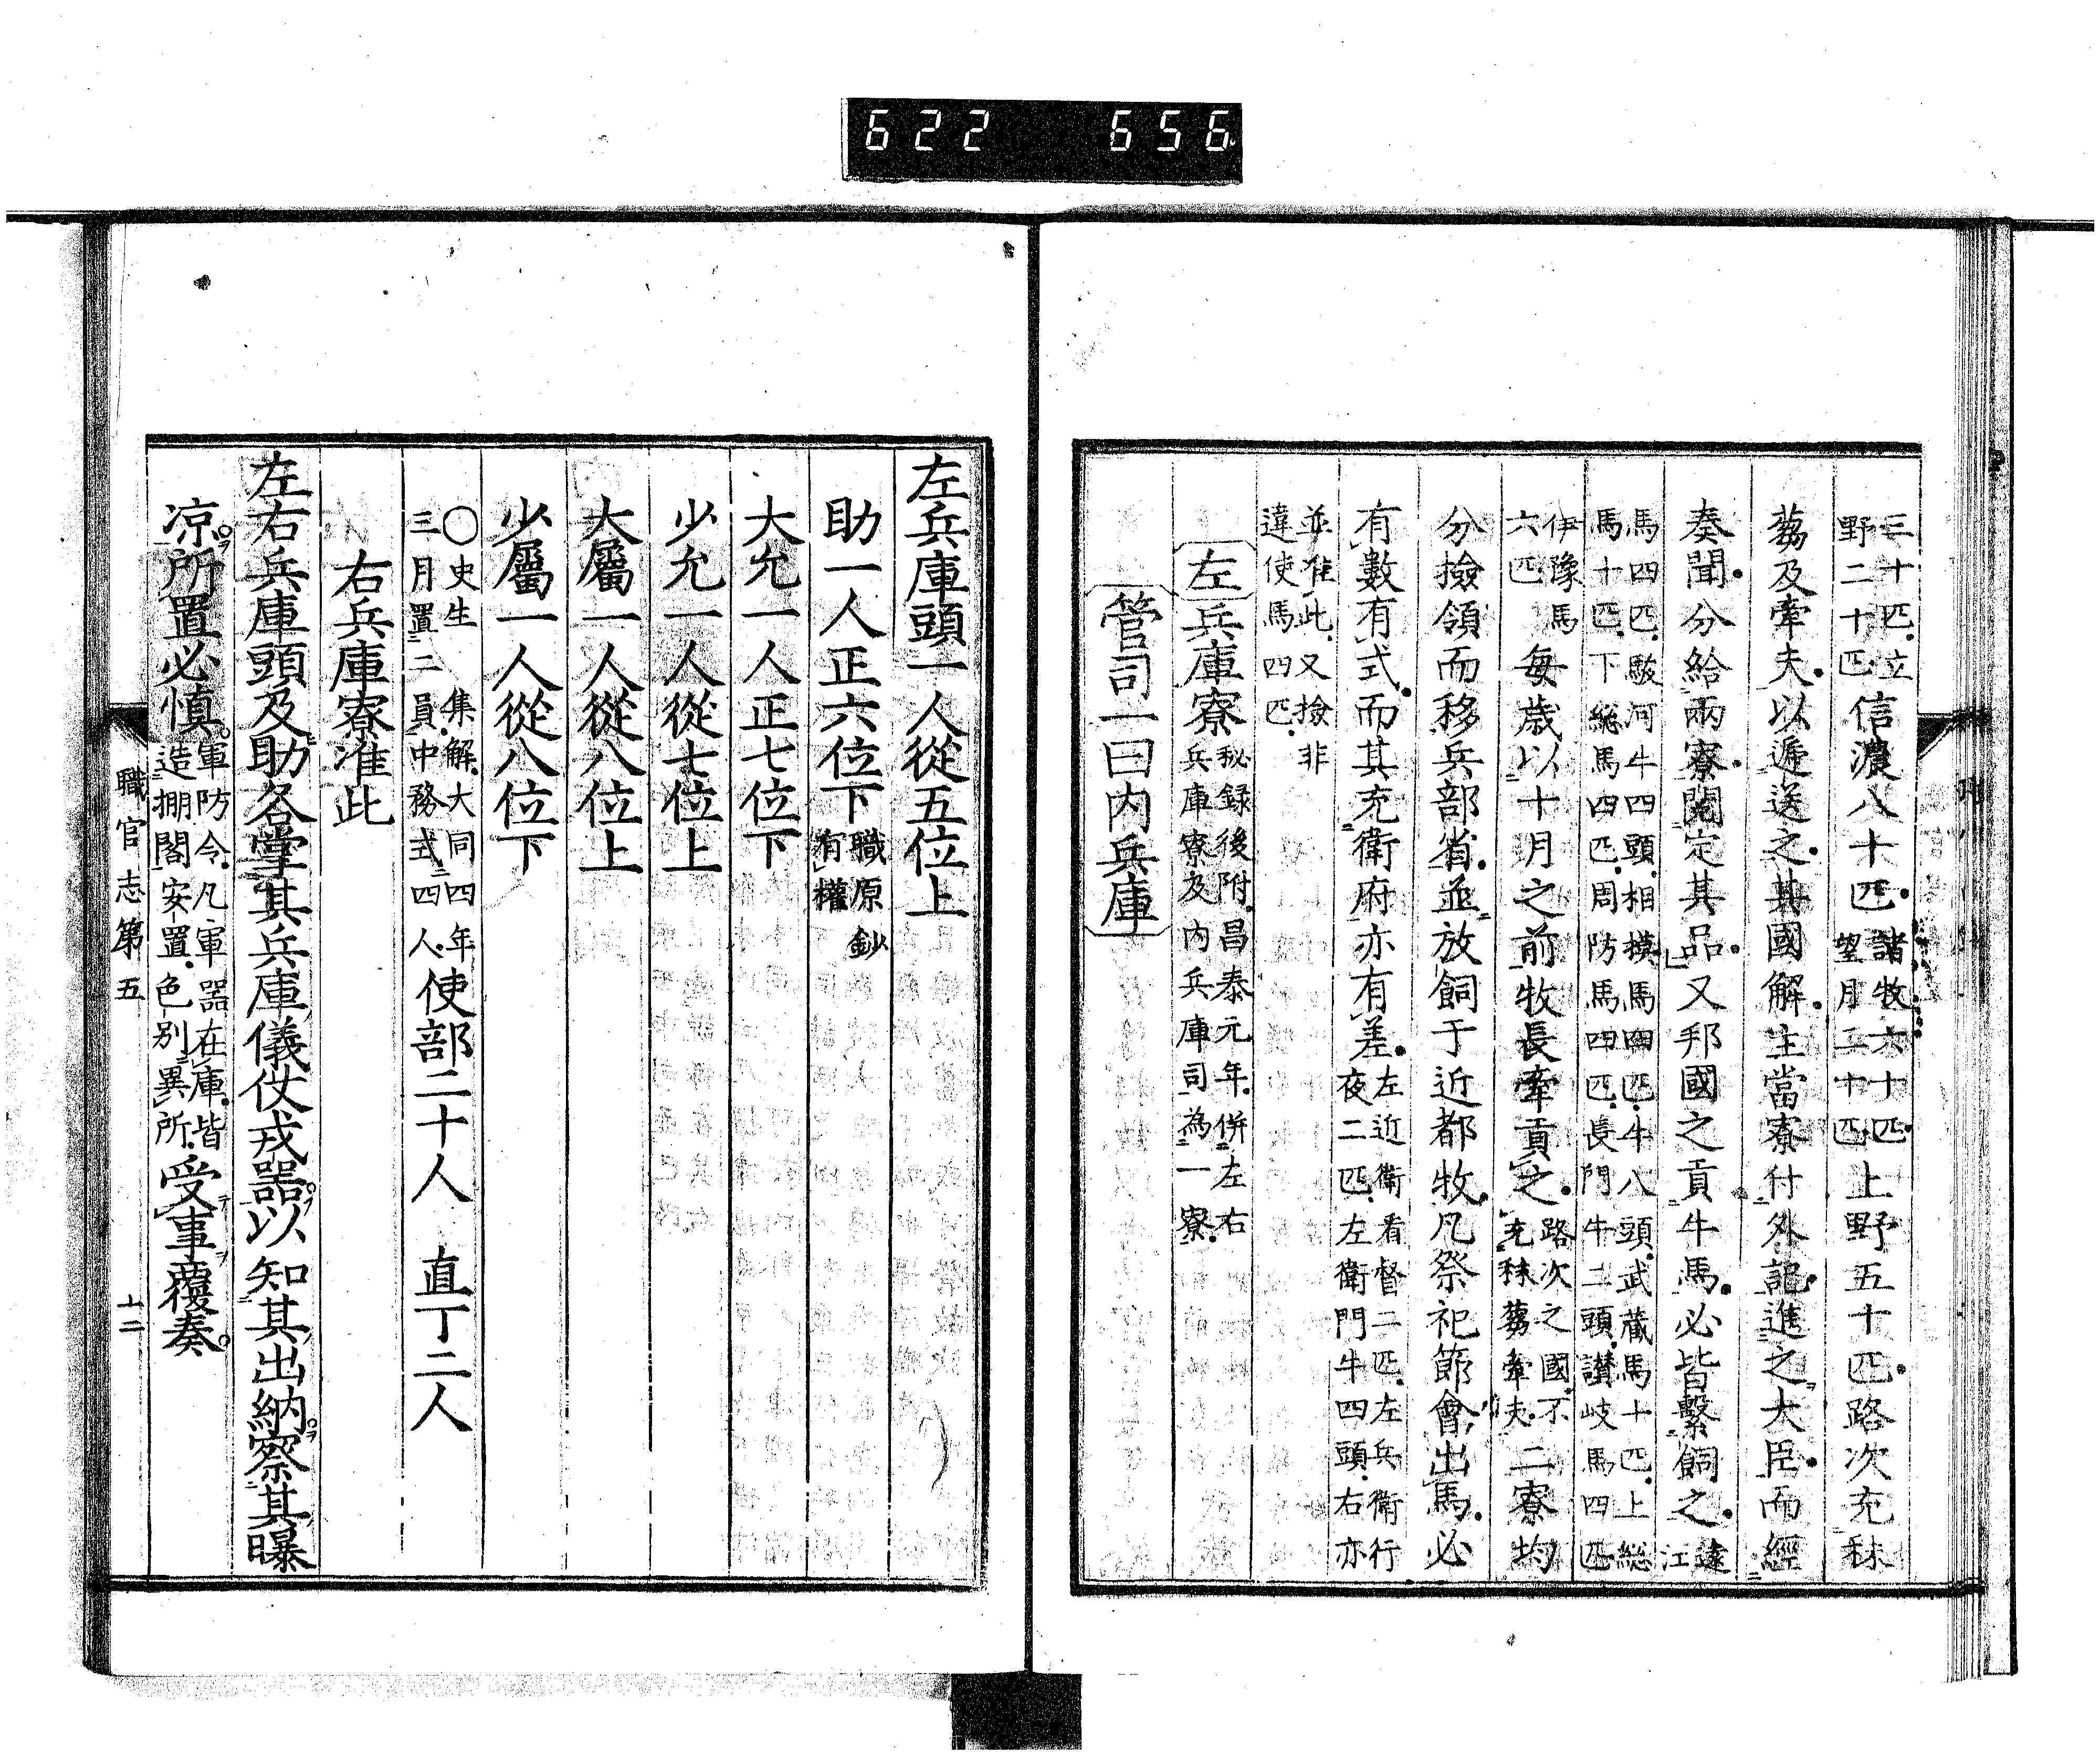 622 656
三十匹立
野二十匹
信濃八十匹
諸牧六十匹
望月二十匹
上野五十匹路次充秣
蒭及牽夫以遞送之其國解主當寮付外記進之大臣而經
奏聞分給兩寮閱定其品又邦國之貢牛馬必皆繫飼之
遠
江
馬四匹駿河牛四頭相摸馬四匹牛八頭武藏馬十匹上総
馬十匹下総馬四匹周防馬四匹長門牛二頭讃岐馬四匹
伊豫馬
六匹
每歳以十月之前牧長牽貢之
路次之國不
充秣蒭牽夫
二寮均
分撿領而移兵部省並放飼于近都牧凡祭祀節會出馬必
有數有式而其充衛府亦有差
左近衞看督二匹左兵衞行
夜二匹左衞門牛四頭右亦
並准此又撿非
違使馬四匹
左兵庫寮
秘録後附昌泰元年併左右
兵庫寮及内兵庫司為一寮
管司一曰内兵庫
左兵庫頭一人從五位上
助一人正六位下
職原鈔
有權
大允一人正七位下
少允一人從七位上
大屬一人從八位上
少屬一人從八位下
〇史生 集解大同四年
三月置二員中務式四人
使部二十人 直丁二人
右兵庫寮准此
左右兵庫頭及助各掌其兵庫儀仗戎器以知其出納察其曝
凉所置必慎
軍防令凡軍器在庫皆
造棚閣安置色別異所
受事覆奏
職官志第五
十二